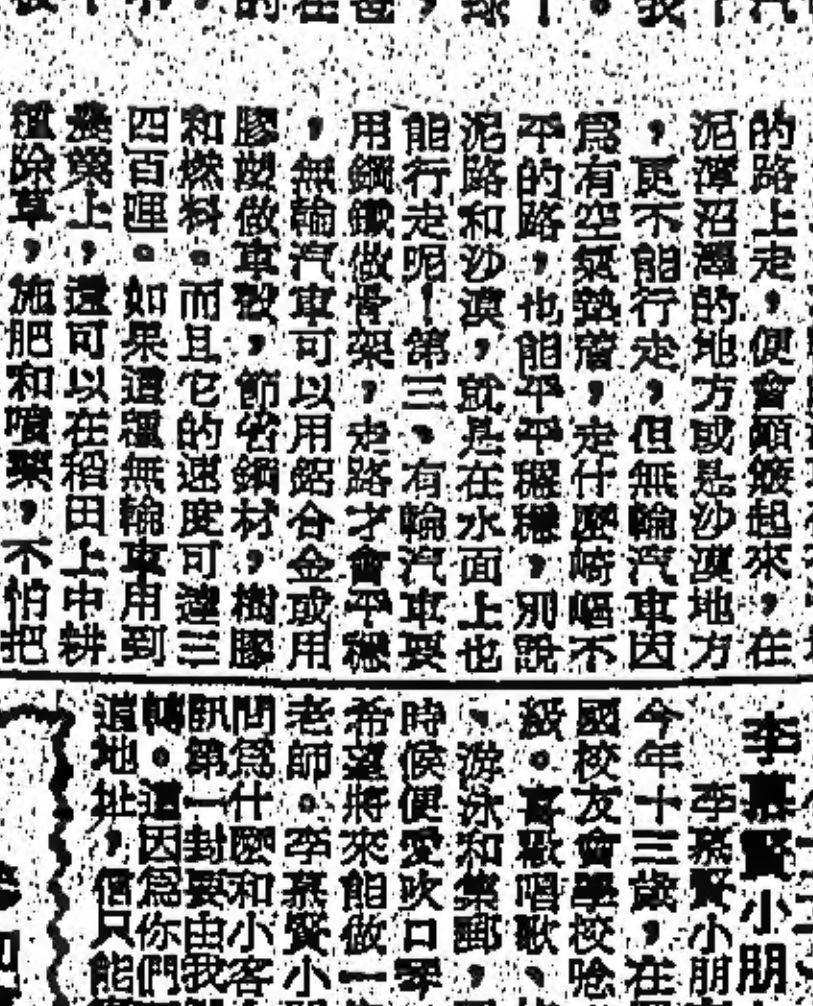 的路上走，便會顛簸起來，在
泥濘沼澤的地方或是沙漠地方
，更不能行走，但無輪汽車因
爲有空氣墊着，走什麼崎嶇不
平的路，也能平平穩穩，別說
泥路和沙漠，就是在水面上也
能行走呢！第三、有輪汽車要
用鋼鐵做骨架，走路才會平穩
，無輪汽車可以用鋁合金或用
膠塑做車殼，節省鋼材，樹膠
和燃料。而且它的速度可達三
四百哩。如果這種無輪車用到
農業上，還可以在稻田上中耕
除草，施肥和噴藥，不怕把
李慕賢小朋
李慕賢小朋
今年十三歲，在
國校友會學校唸
級。喜歡唱歌、
、游泳和集郵，
時候便愛吹口琴
希望將來能做一
老師。李慕賢小
問爲什麼和小客
訊第一封要由我
轉。這因爲你們
這地址，個只能